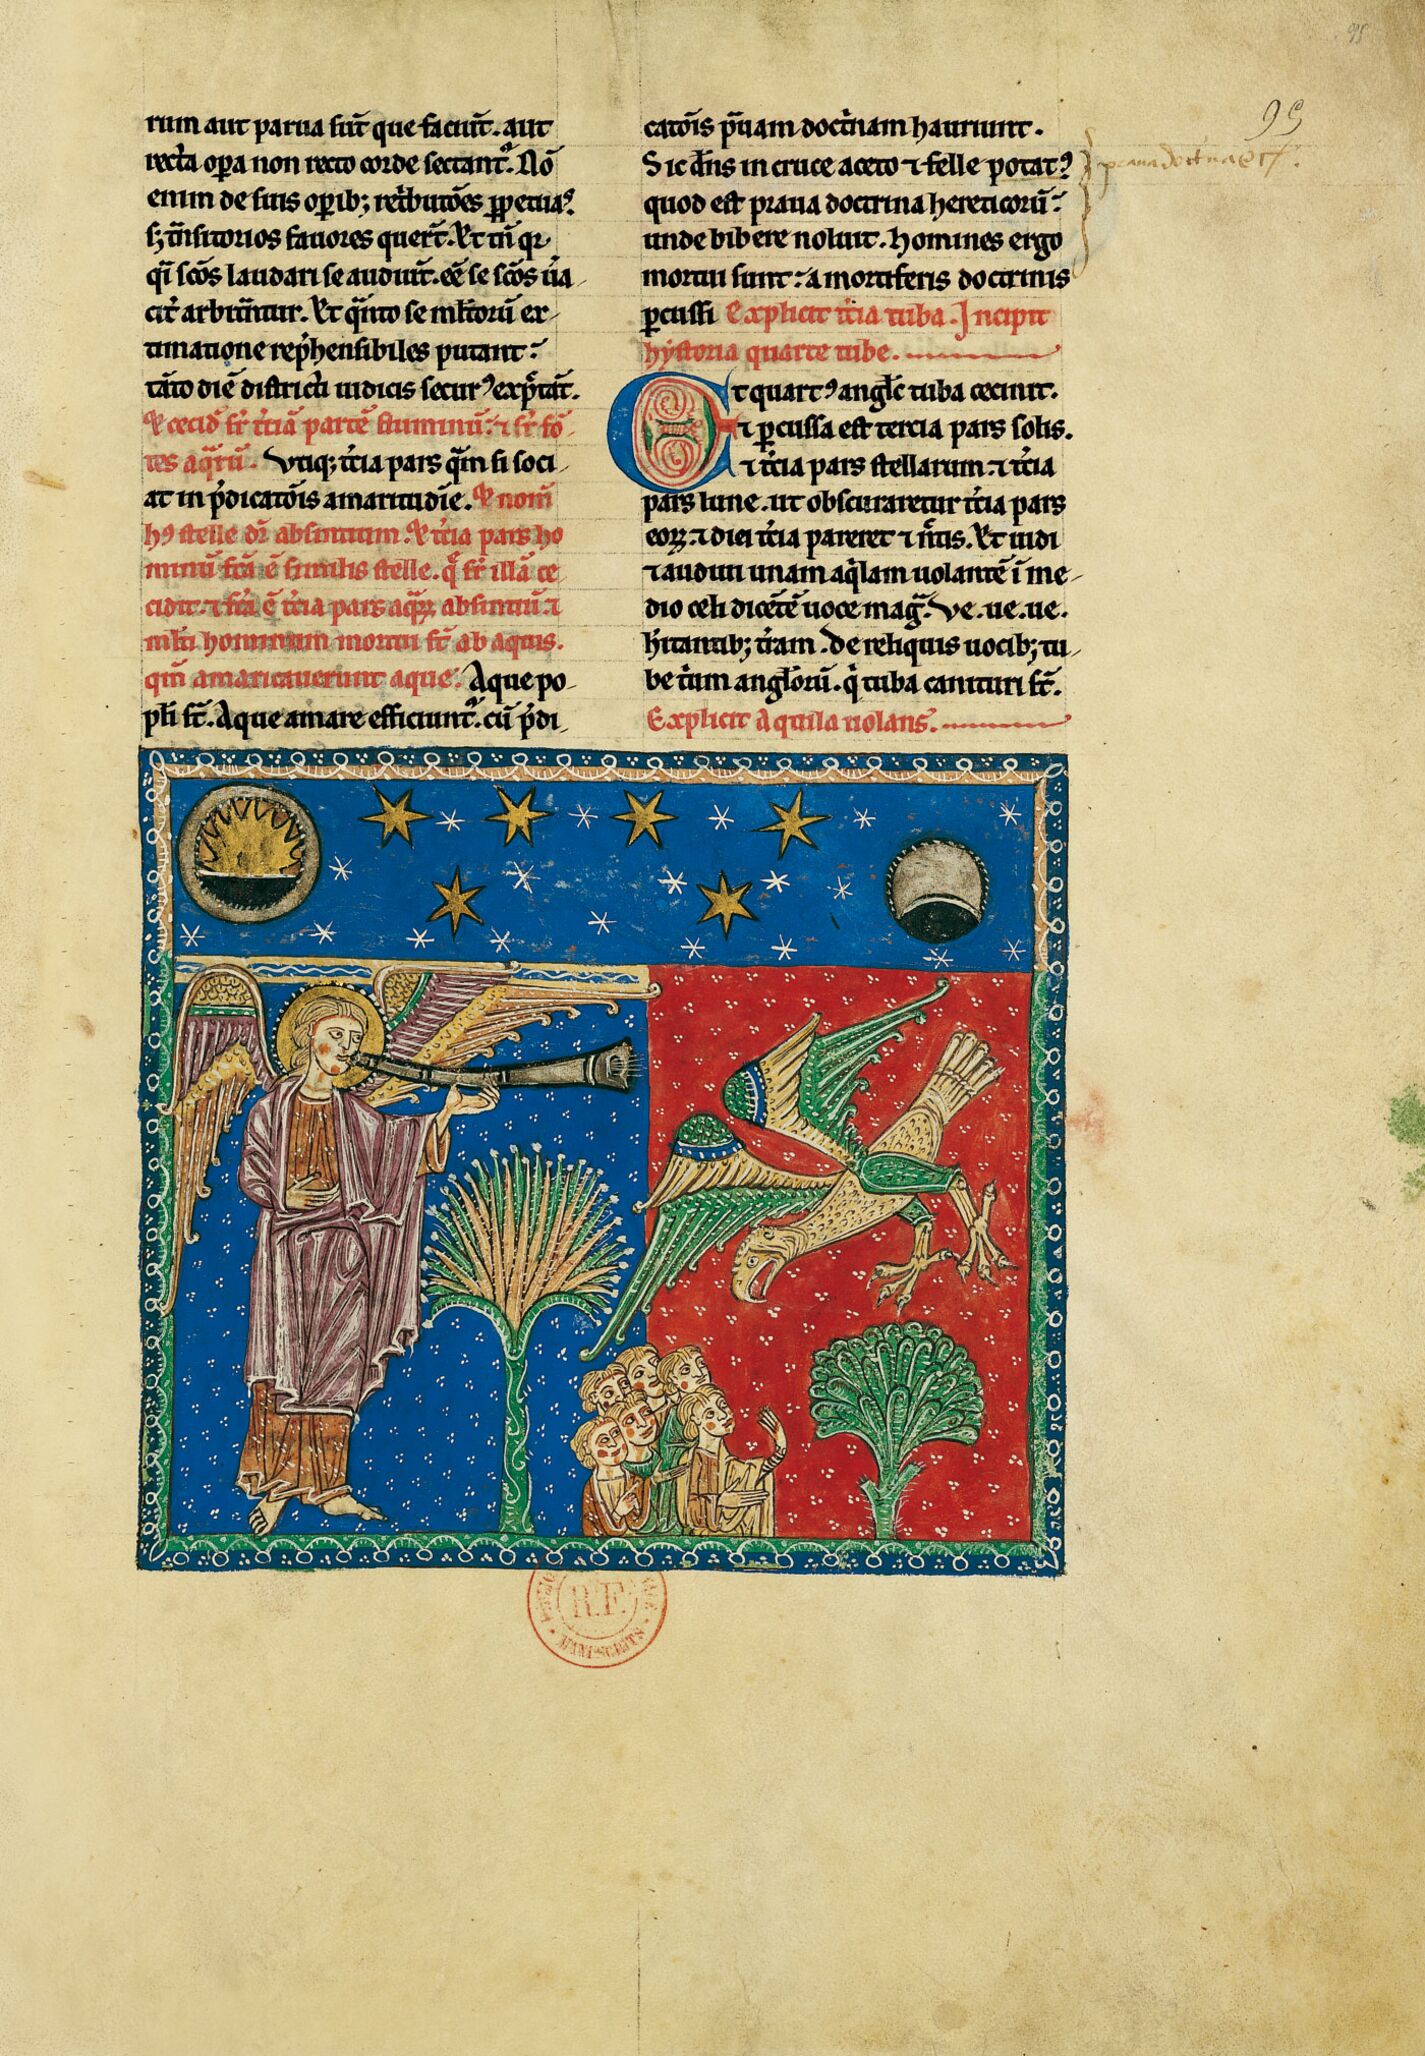 95
95
rum aut parua sūt que faciūt. aut
recta oꝑa non recto corde sectant᷑. Nō
enim de suis oꝑib; ret͛butōes ꝑpetuaꝰ.
s; t͛nsitorios fauores querūt. Et tn̄ qꝛ
qͥ scōs laudari se audiūt. eē se scōs ūa
cit͛ arbit͛ntur. Et qͣnto se ml̄torū ex-
timatione rep͛hensibiles putant:
tāto diē districti iudicis securꝰ exp͛tāt.
Et cecid͛ sr̄ t͛ciā partē fluminū: ⁊ sr̄ fō-
tes aqͣrū. Vtiq; t͛cia pars qͣm si soci-
at in p͛dicatōis amaritudīe. Et nom̄
hꝰ stelle dr̄ absintium. Et t͛cia pars ho
minū fc̄a ē similis stelle. qͣ sr̄ illā ce
cidit. ⁊ fc̄a ē t͛cia pars aqͣꝝ absintiū. ⁊
ml̄ti hominum mortui st̄ ab aquis.
qm̄ amaricauerunt aque. Aque po-
pl̄i st̄. Aque amare efficiunt᷑. cū p͛di-
catōis prauam doct͛nam hauriunt.
Sic dn̄s in cruce aceto ⁊ felle potatꝰ
praua doctrina
quod est praua doctrina hereticorū:
unde bibere noluit. homines ergo
mortui sunt: a mortiferis doctrinis
ꝑcussi Explicit t͛cia tuba. Incipit
hystoria quarte tube.
Et quartꝰ angl̄s tuba cecinit.
⁊ ꝑcussa est tercia pars solis.
⁊ t͛cia pars stellarum. ⁊ t͛cia
pars lune. ut obscuraretur t͛cia pars
eoꝝ. ⁊ diei t͛cia pareret ⁊ n̄tis. Et uidi
⁊ audiui unam aqͥlam uolantē ī me-
dio celi dicētē uoce magͣ. Ve. ue. ue.
h͛itantib; t͛ram. de reliquis uocib; tu-
be t͛ium angl̄orū. qͥ tuba canituri st̄.
Explicit Aquila uolans.
R.F.
MANUSCRITS